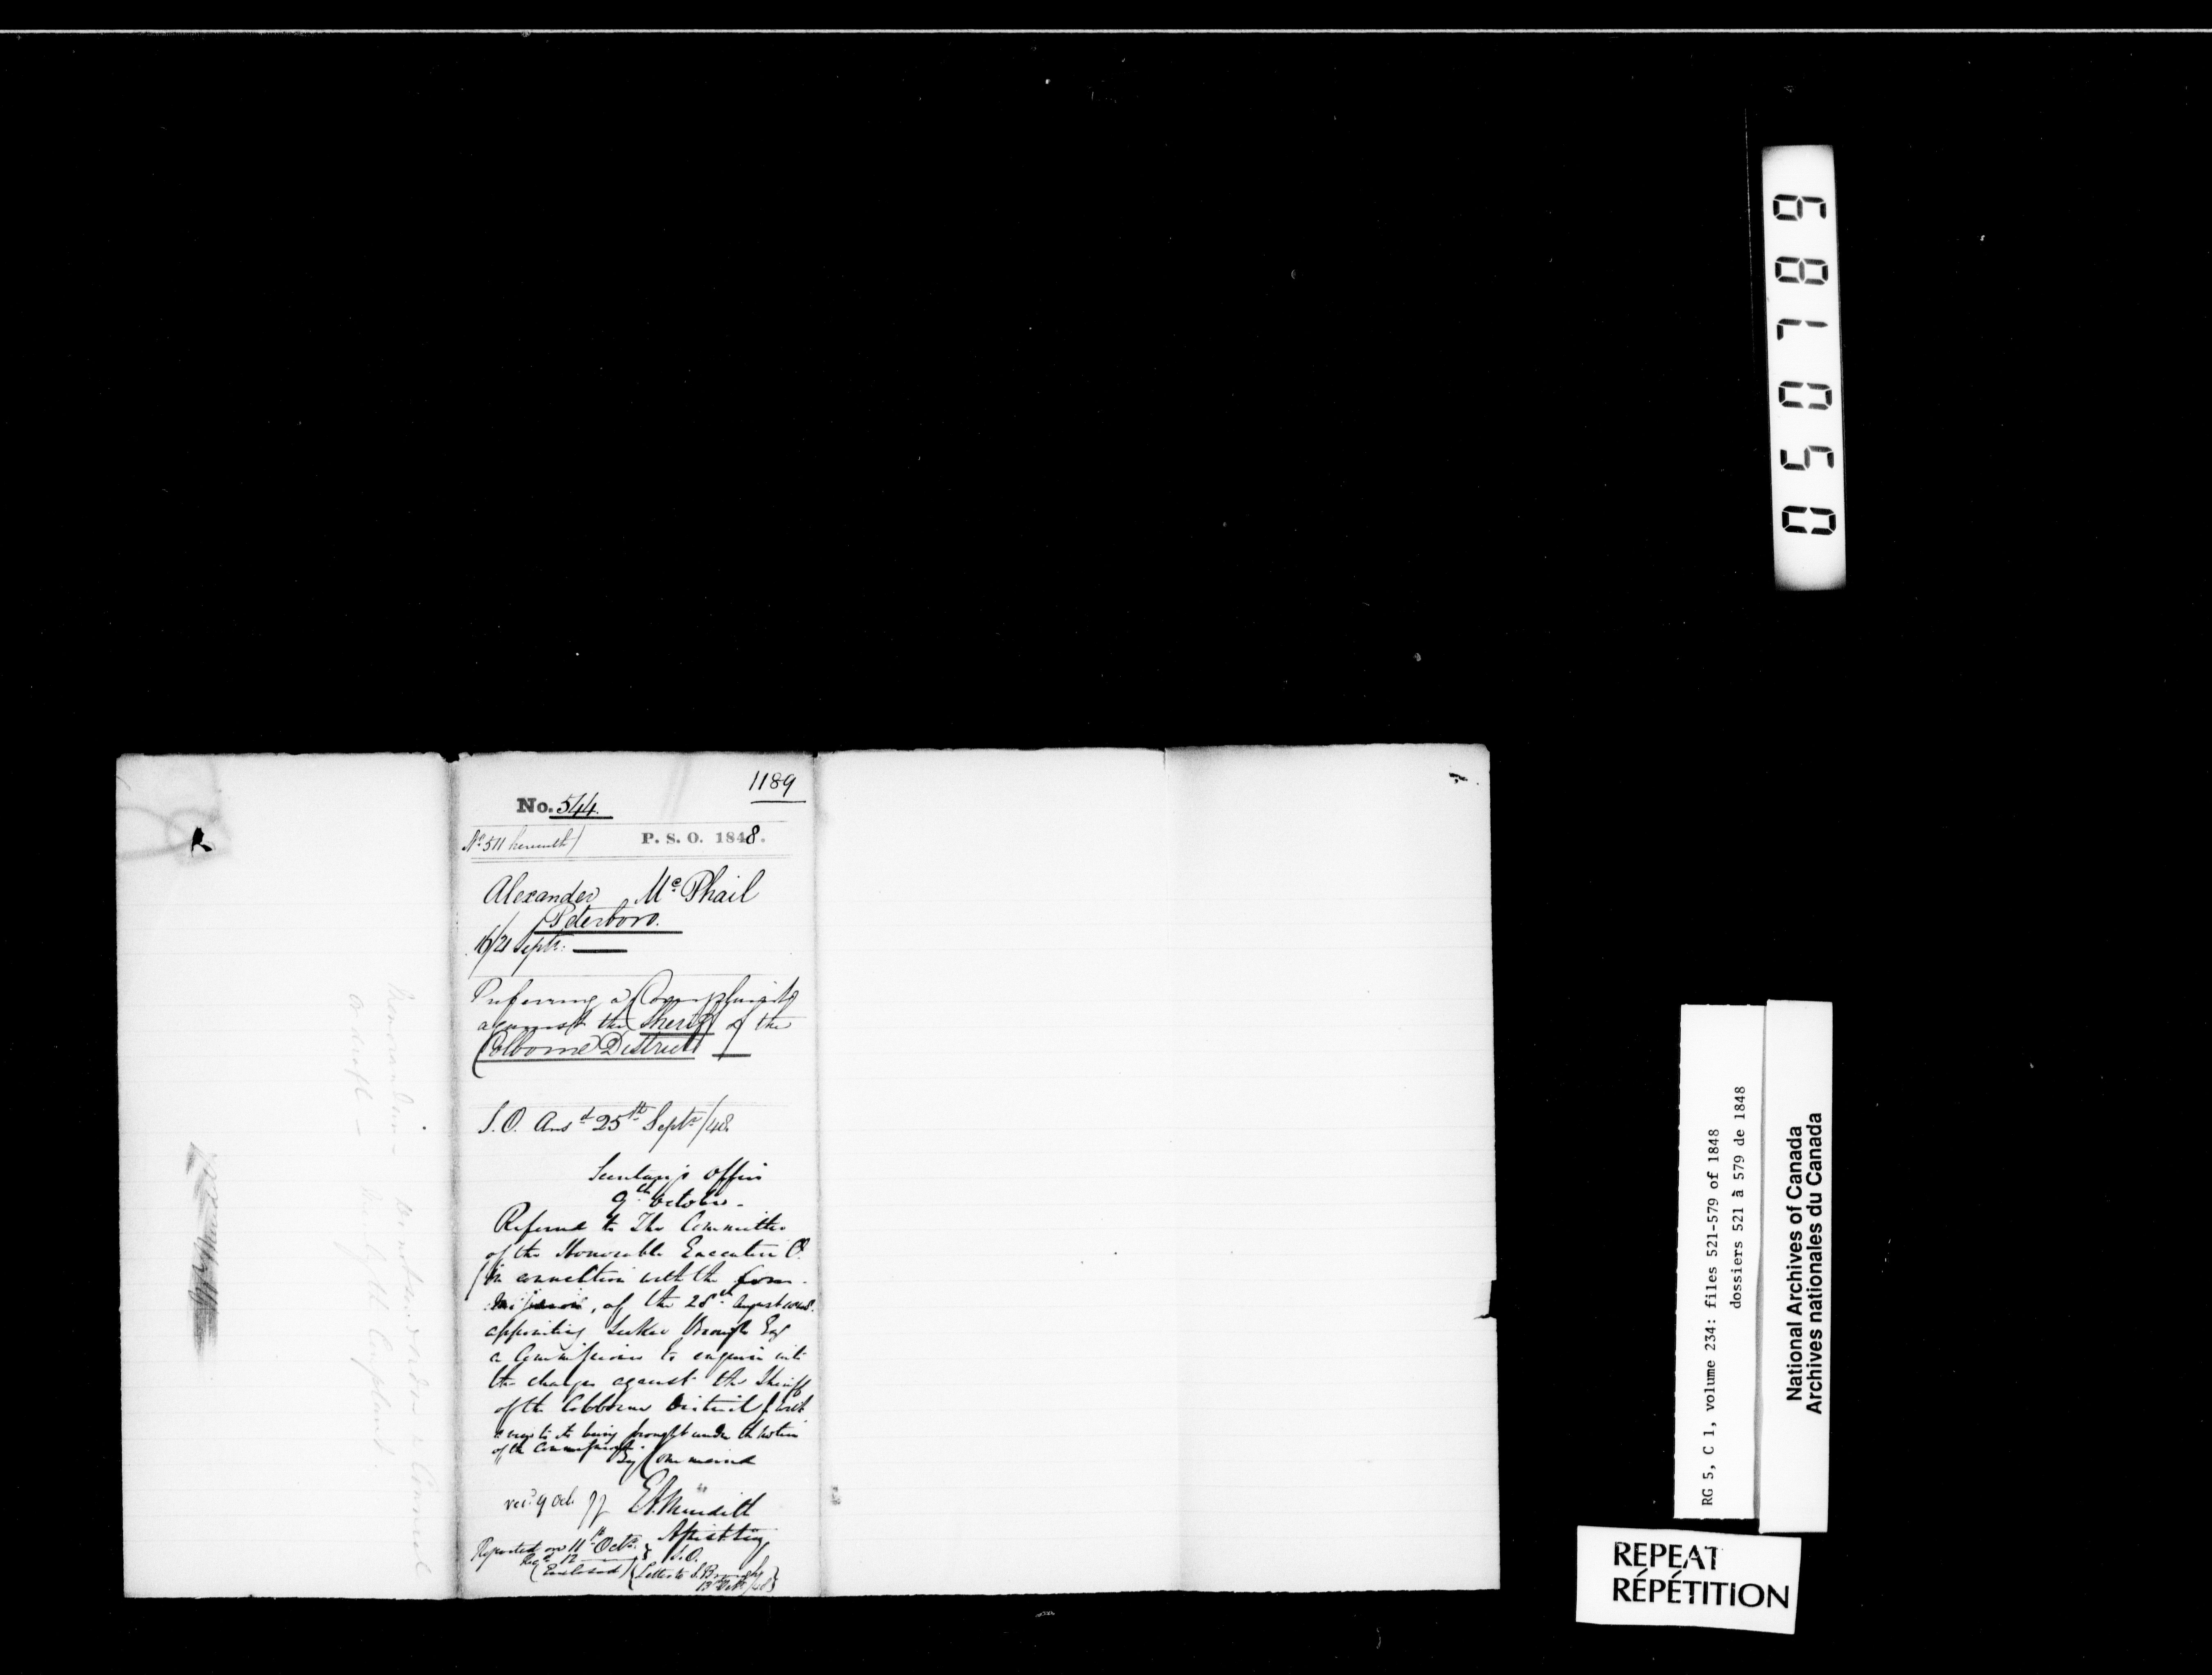 1189
No. 544.
No 511 herewith) P. S. O. 1848.
Alexander McPhail
Peterboro.
16/21 Septr:
Preferring a Complaint
against the Sheriff of the
Colborne District
S. O. Ansd 25th Septr/48
Secretary's Office
9th October -
Referred to The Committee
of the Honorable Executive C.
(in connection with the Com-
mission, of the 28th August 1848.
appointing Secker Brough Esq
a Commissioner to enquire into
the charges against the Sheriff
of the Colborne District) with
a view to its being brought under the notice
of the Commissioner.
By Command
E. A. Meredith
Asist. Secy
S. O.
recd 9 Oct.
Reported on 11th Octr.
Recd 12
(Enclosed) (Letter to S. Brough
13th Octr/48)
Memorandum
057189
RG 5, C 1, volume 234: files 521-579 of 1848
dossiers 521 à 579 de 1848
National Archives of Canada
Archives nationales du Canada
REPEAT
RÉPÉTITION